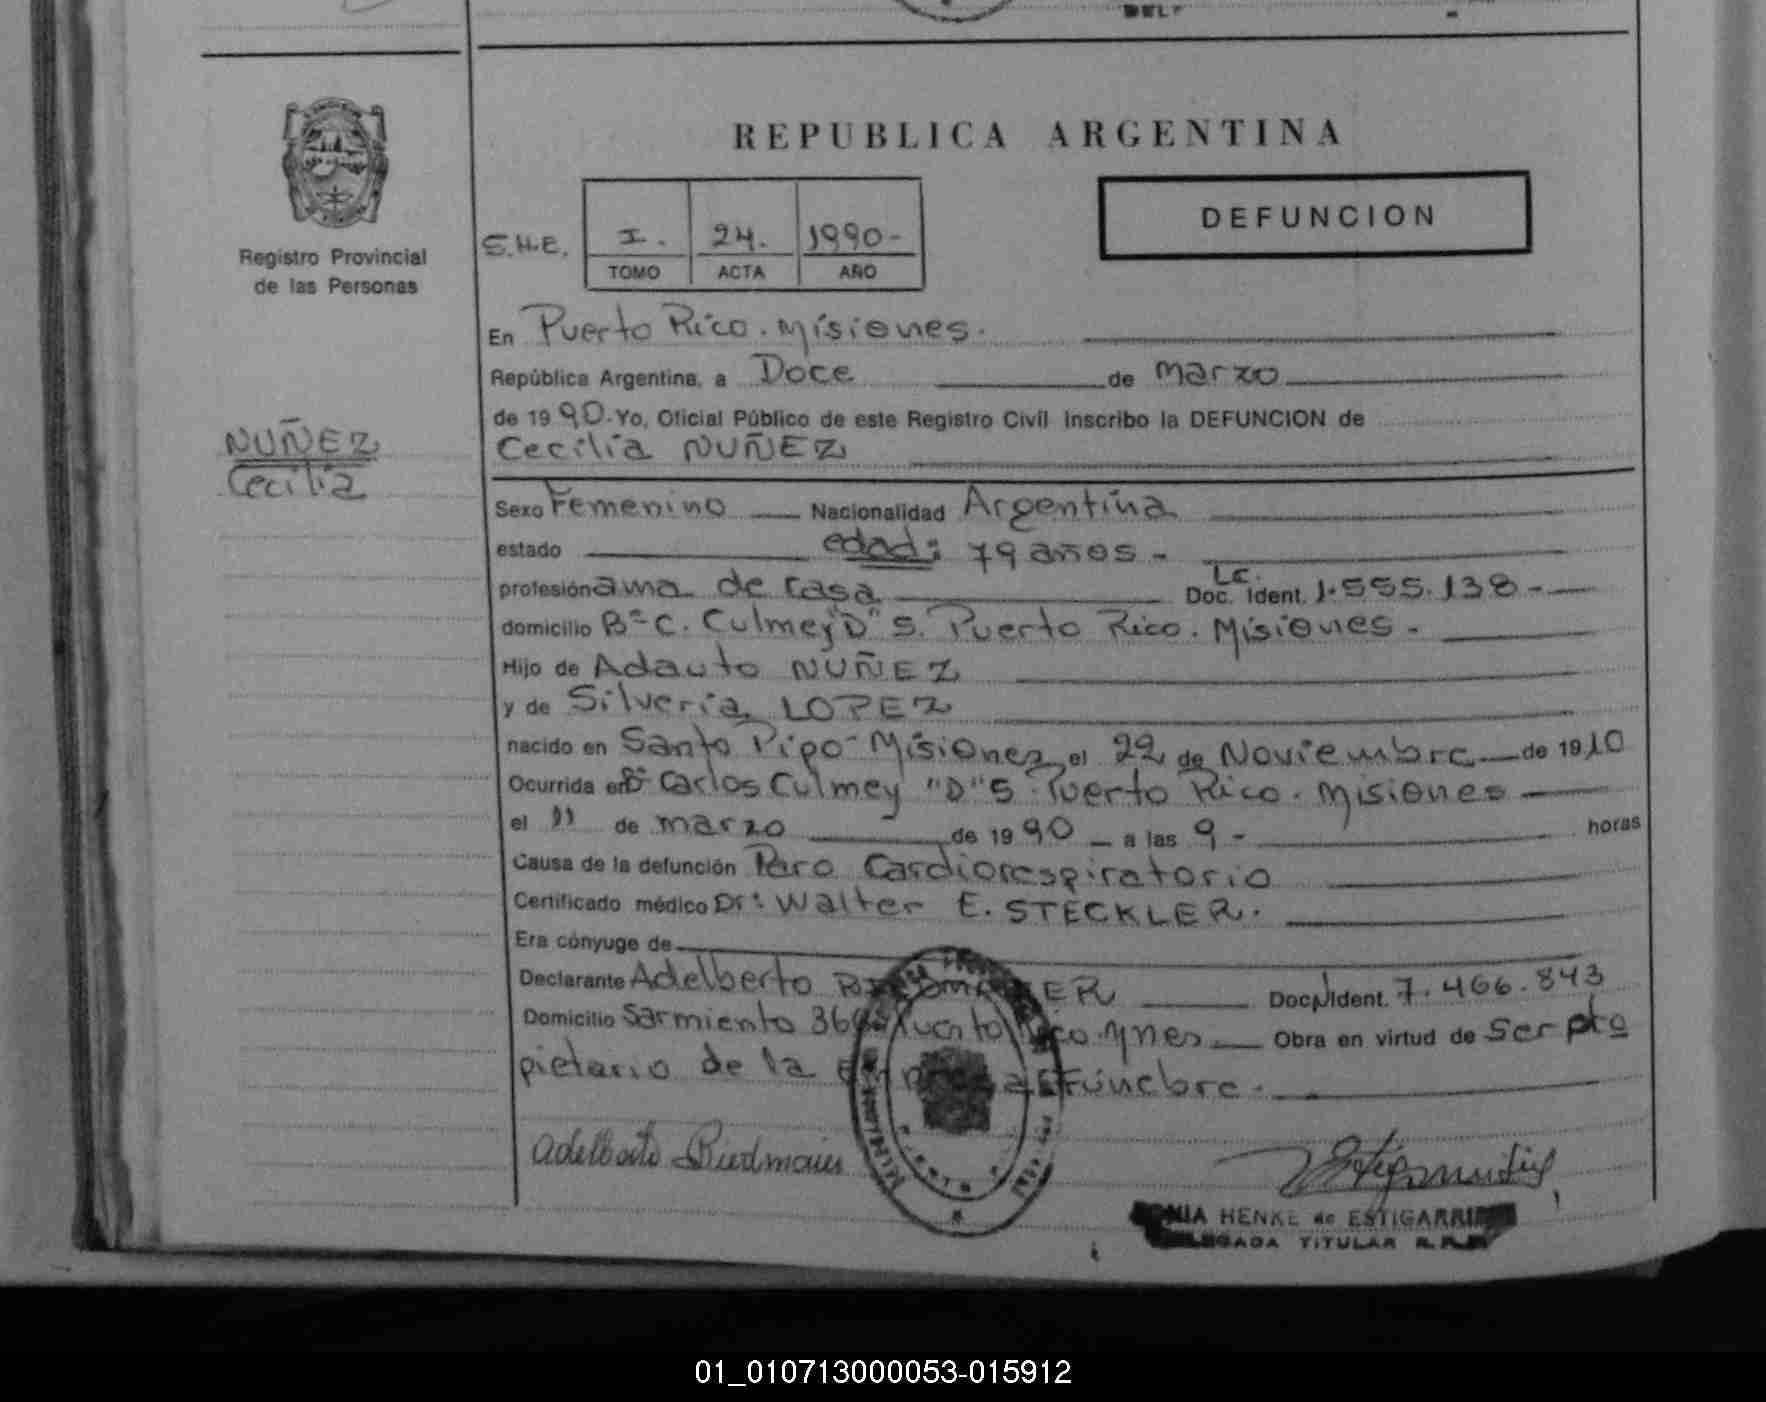 REPUBLICA ARGENTINA
DEFUNCION
Registro Provincial
de las Personas
S.H.E. I. 24. 1990-
TOMO ACTA AÑO
En Puerto Rico. Misiones.
República Argentina, a Doce de marzo
de 1990. Yo, Oficial Público de este Registro Civil Inscribo la DEFUNCION de
NUÑEZ
Cecilia
Cecilia NUÑEZ
Sexo Femenino Nacionalidad Argentina
estado edad: 79 años -
profesión ama de casa L.C. Doc. Ident. 1.555.138-
domicilio Bº C. Culmey "D" S. Puerto Rico. Misiones.
Hijo de Adauto NUÑEZ
y de Silveria LOPEZ
nacido en Santo Pipo- Misiones el 22 de Noviembre de 1910
Ocurrida en Bº Carlos Culmey "D" S. Puerto Rico. Misiones
el 11 de marzo de 1990 a las 9- horas
Causa de la defunción Paro Cardiorespiratorio
Certificado médico Dr: Walter E. STECKLER.
Era cónyuge de
Declarante Adelberto Doc. Ident. 7.466.843
Domicilio Sarmiento Obra en virtud de Ser pro
pietario de la Fúnebre.
Adelberto Biedmaier
HENKE de ESTIGARRIBIA
TITULAR
01_010713000053-015912